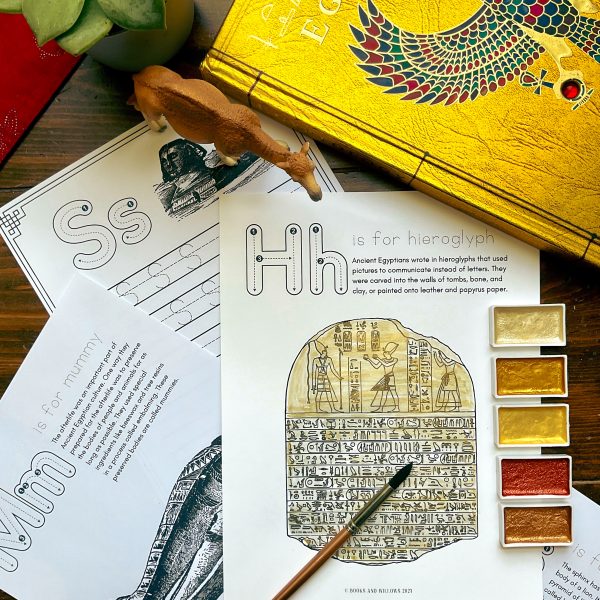 EG
Ss
Hh
is for hieroglyph
Ancient Egyptians wrote in hieroglyphs that used
pictures to communicate instead of letters. They
were carved into the walls of tombs, bone, and
clay, or painted onto leather and papyrus paper.
© BOOKS AND WILLOWS 2021
Mm
is for mummy
The afterlife was an important part of
Ancient Egyptian culture. One way they
prepared for the afterlife was to preserve
the bodies of people and animals for as
long as possible. They used special
ingredients like beeswax and tree resins
in a process called embalming. These
preserved bodies are called mummies.
is fo
The sphinx has
body of a lion.